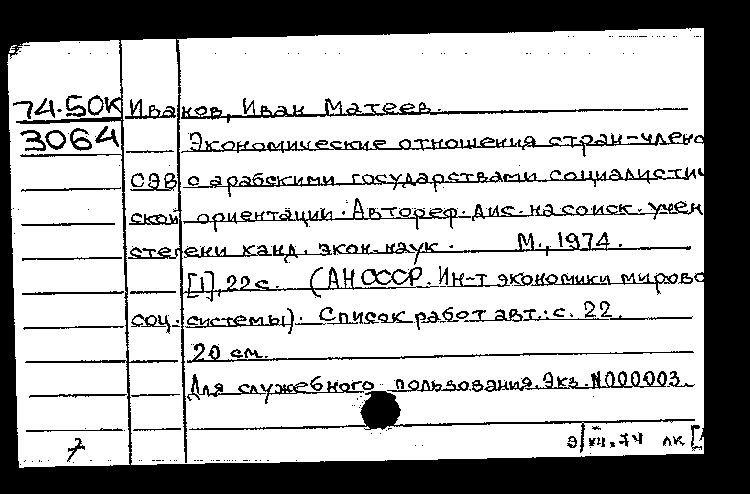 74-50К Иванов, Иван Матеев.
3064 Экономические отношения стран-члено
СЭВ с арабскими государствами социалистич
ской ориентации. Автореф. дис. на соиск. учен
степени канд. экон. наук. М., 1974.
[1], 22 с. (АН СССР. Ин-т экономики мирово
соц. системы). Список работ авт.: с. 22.
20 см.
Для служебного пользования. Экз. N000003.
7 9/XII.74 лк [